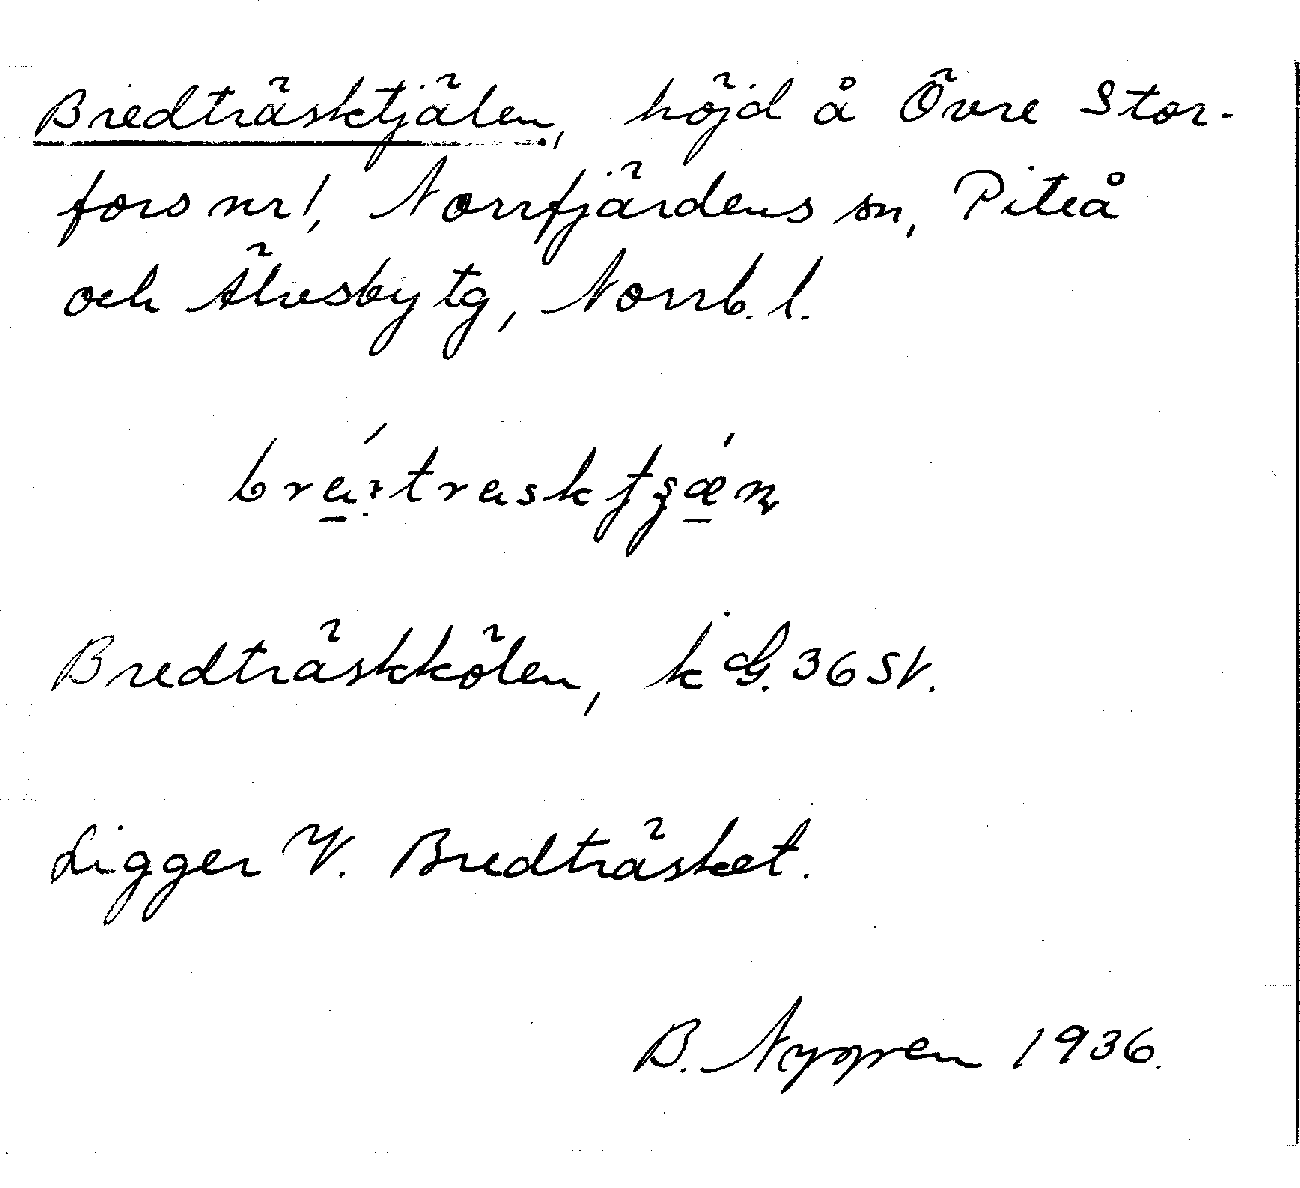 Bredträsktjälen, höjd å Övre Stor-
fors nr 1, Norrfjärdens sn, Piteå
och Älvsby tg, Norrb. l.
Bredträskkölen, k G. 36 SV.
Ligger V. Bredträsket.
B. Nygren 1936.